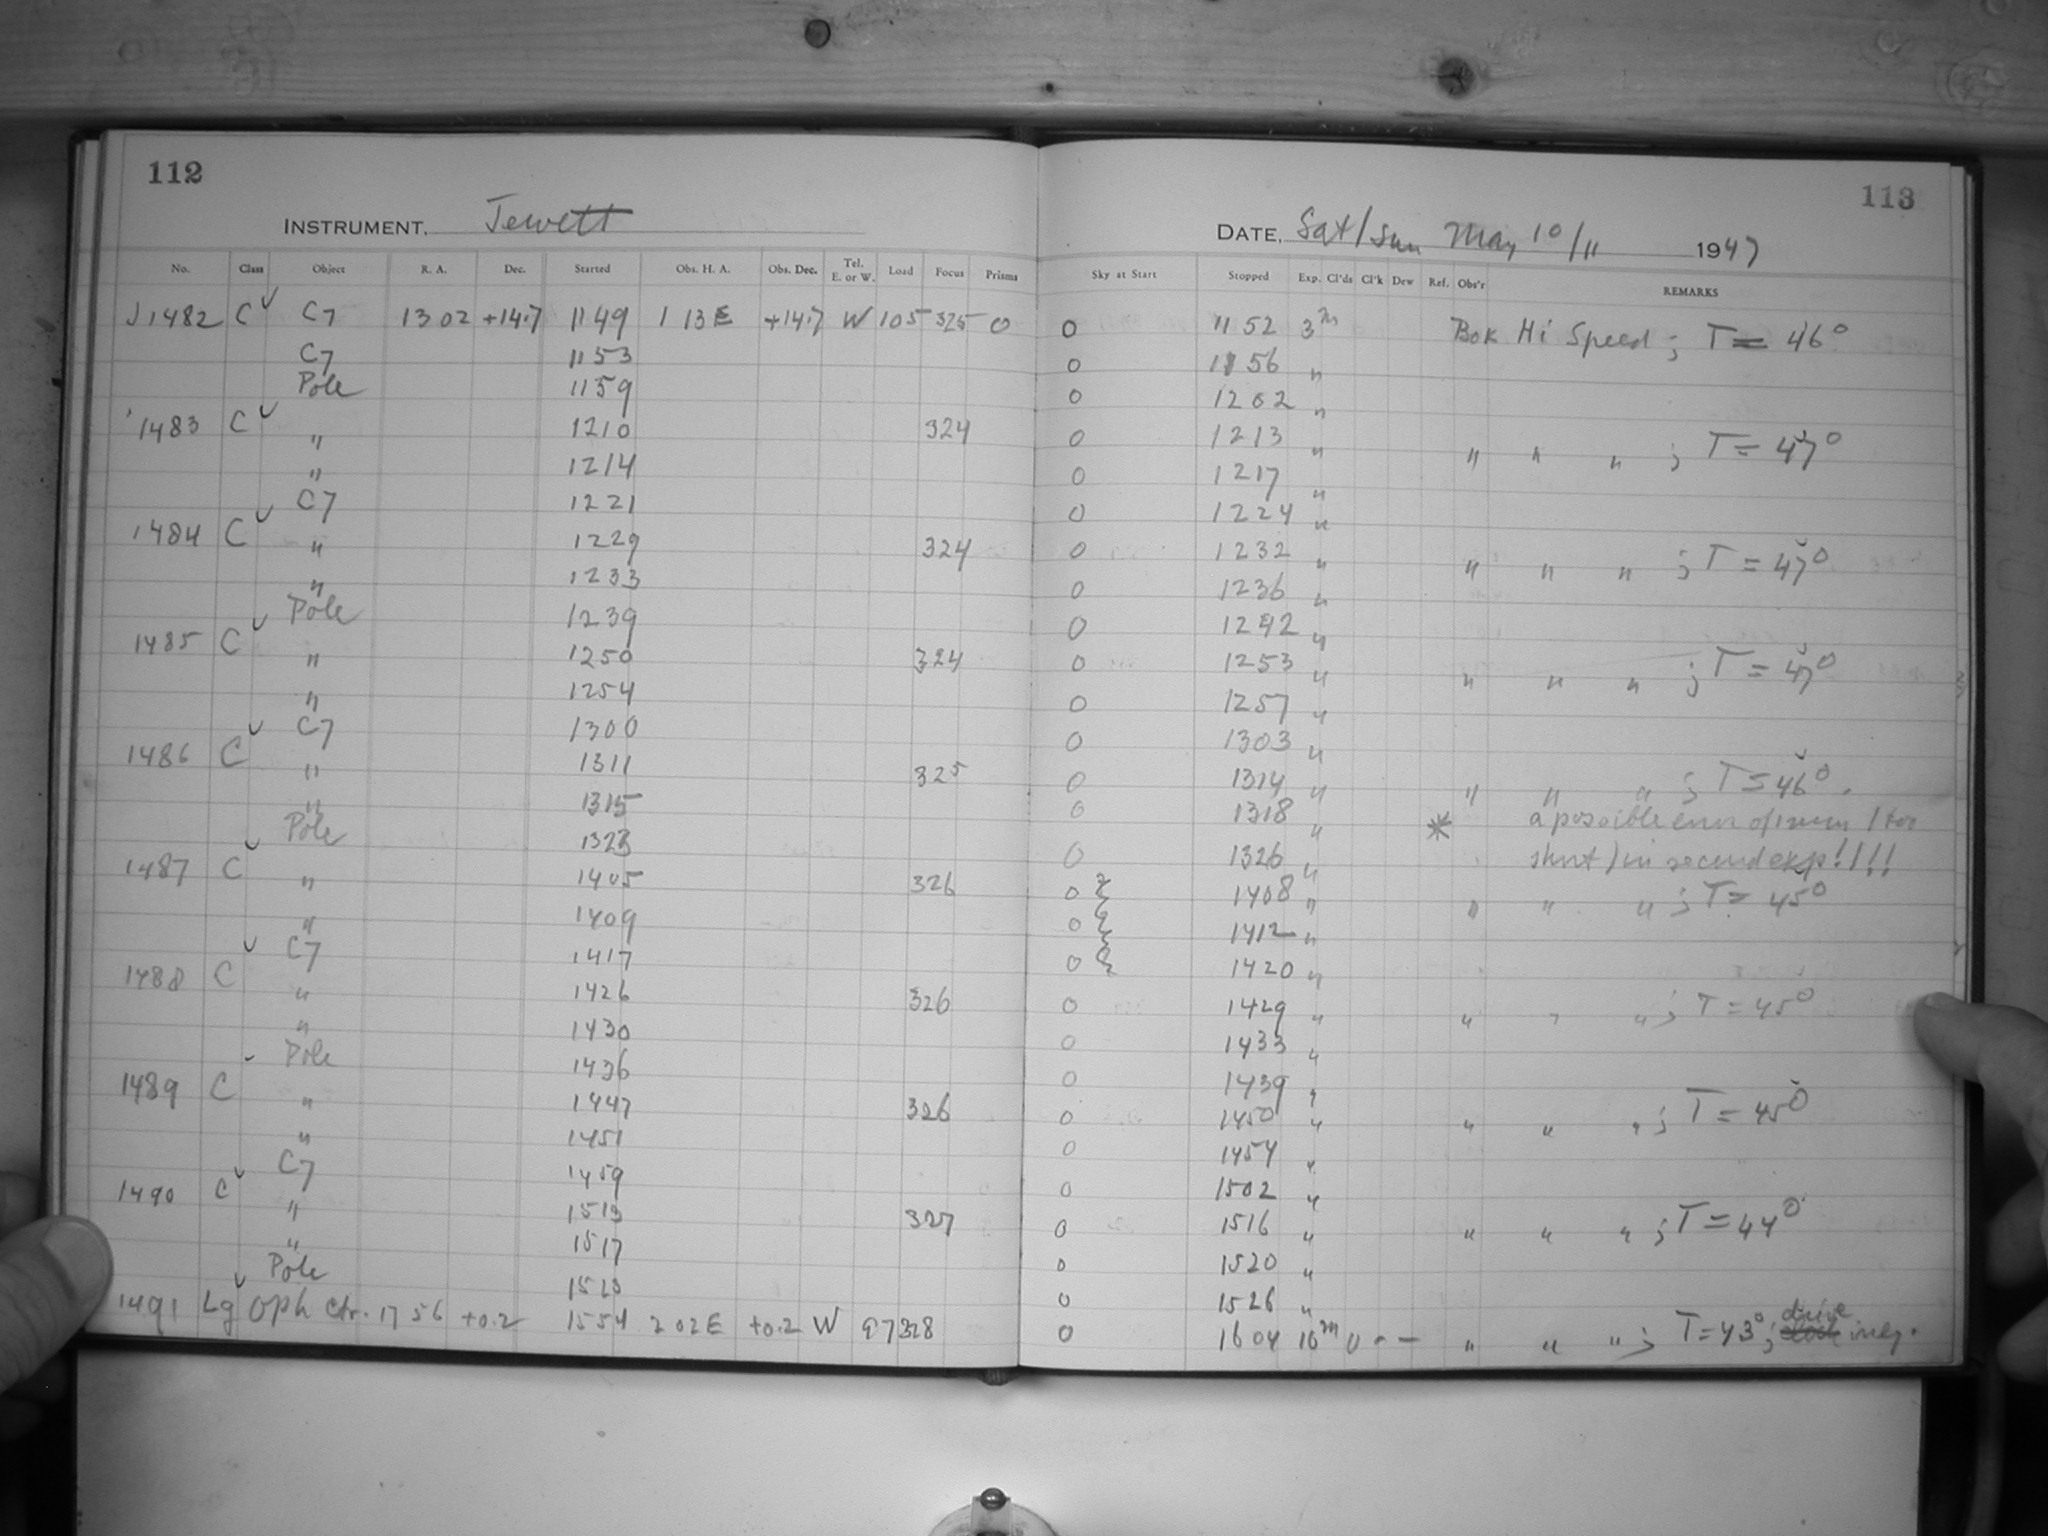 112
INSTRUMENT. Jewett
No. Class Object R. A. Dec. Started Obs. H. A. Obs. Dec. Tel. E. or W. Load Focus Prisms
J1482 C ✓ C7 1302 +14.7 1149 1 13 E +14.7 W 105 325 0
C7 1153
Pole 1159
1483 C ✓ " 1210 324
" 1214
C7 1221
1484 C ✓ " 1229 324
" 1233
Pole 1239
1485 C ✓ " 1250 324
" 1254
C7 1300
1486 C ✓ " 1311 325
" 1315
Pole 1323
1487 C ✓ " 1405 326
" 1409
C7 1417
1488 C ✓ " 1426 326
" 1430
Pole 1436
1489 C " 1447 326
" 1451
C7 1459
1490 C ✓ " 1513 327
" 1517
Pole 1523
1491 Lg ✓ Oph Ctr. 17 56 +0.2 1554 2 02 E +0.2 W 97 328
113
DATE, Sat/Sun May 10/11 1947
Sky at Start Stopped Exp. Cl'ds Cl'k Dew Ref. Obs'r REMARKS
0 1152 3m Bok Hi Speed ; T = 46°
0 1156 "
0 1202 "
0 1213 " " " " ; T = 47°
0 1217 "
0 1224 "
0 1232 " " " " ; T = 47°
0 1236 "
0 1242 "
0 1253 " " " " ; T = 47°
0 1257 "
0 1303 "
0 1314 " " " " ; T = 46°.
0 1318 " * a possible error of 1 min (too
0 1326 " short) in second exp!!!!
0 1408 " " " " ; T = 45°
0 1412 "
0 1420 "
0 1429 " " " " ; T = 45°
0 1433 "
0 1439 "
0 1450 " " " " ; T = 45°
0 1454 "
0 1502 "
0 1516 " " " " ; T = 44°
0 1520 "
0 1526 "
0 1604 10m 0 - - " " " ; T = 43° ; drive irreg.